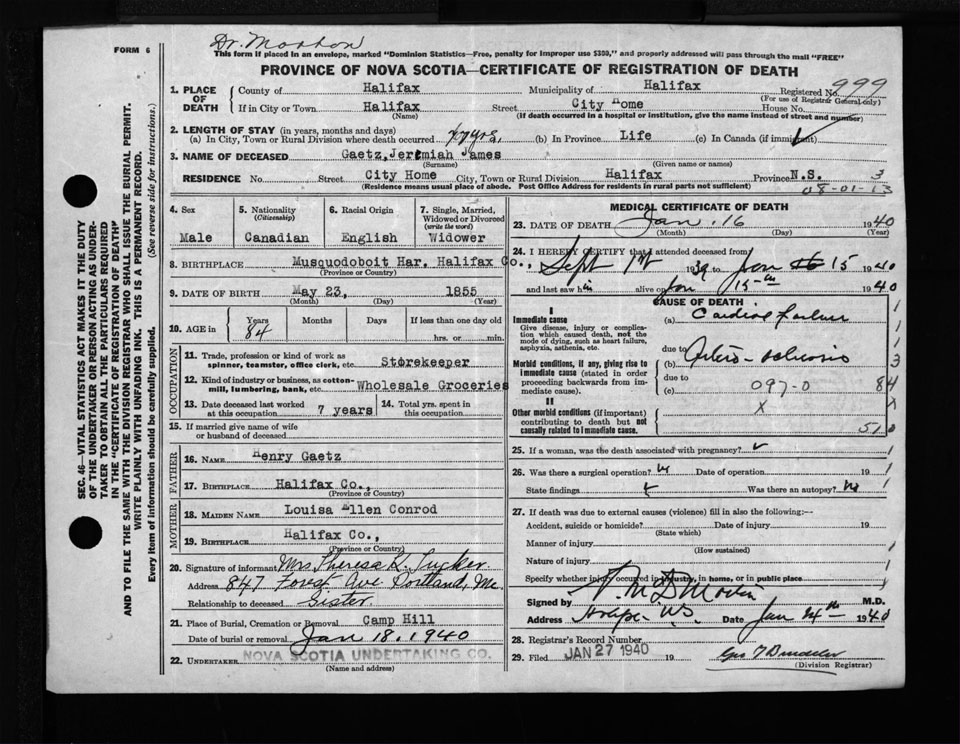 Dr. Morton
FORM 6
This form if placed in an envelope, marked "Dominion Statistics—Free, penalty for improper use $300," and properly addressed will pass through the mail "FREE"
PROVINCE OF NOVA SCOTIA—CERTIFICATE OF REGISTRATION OF DEATH
1. PLACE OF DEATH
County of Halifax Municipality of Halifax Registered No. 999
(For use of Registrar General only)
If in City or Town Halifax Street City Home House No.
(Name) (If death occurred in a hospital or institution, give the name instead of street and number)
2. LENGTH OF STAY (in years, months and days)
(a) In City, Town or Rural Division where death occurred yrs. (b) In Province Life (c) In Canada (if immigrant)
3. NAME OF DECEASED Gaetz, Jeremiah James
(Surname) (Given name or names)
RESIDENCE No. Street City Home City, Town or Rural Division Halifax Province N.S. 3
(Residence means usual place of abode. Post Office Address for residents in rural parts not sufficient) 08-01-13
4. Sex Male
5. Nationality (Citizenship) Canadian
6. Racial Origin English
7. Single, Married, Widowed or Divorced (write the word) Widower
8. BIRTHPLACE Musquodoboit Har. Halifax Co.,
(Province or Country)
9. DATE OF BIRTH May 23, 1855
(Month) (Day) (Year)
10. AGE in Years 84 Months Days If less than one day old hrs. or min.
OCCUPATION
11. Trade, profession or kind of work as spinner, teamster, office clerk, etc. Storekeeper
12. Kind of industry or business, as cotton-mill, lumbering, bank, etc. Wholesale Groceries
13. Date deceased last worked at this occupation 7 years
14. Total yrs. spent in this occupation
15. If married give name of wife or husband of deceased
FATHER
16. NAME Henry Gaetz
17. BIRTHPLACE Halifax Co.,
(Province or Country)
MOTHER
18. MAIDEN NAME Louisa Ellen Conrod
19. BIRTHPLACE Halifax Co.,
(Province or Country)
20. Signature of informant Mrs Theresa K. Tucker
Address 847 Forest Ave Portland, Me.
Relationship to deceased Sister
21. Place of Burial, Cremation or Removal Camp Hill
Date of burial or removal Jan 18. 1940
22. UNDERTAKER NOVA SCOTIA UNDERTAKING CO.
(Name and address)
MEDICAL CERTIFICATE OF DEATH
23. DATE OF DEATH Jan. 16 1940
(Month) (Day) (Year)
24. I HEREBY CERTIFY that I attended deceased from
Sept 1st 1939 to Jan 15 1940
and last saw him alive on Jan 15th 1940
CAUSE OF DEATH
I
Immediate cause
Give disease, injury or complication which caused death, not the mode of dying, such as heart failure, asphyxia, asthenia, etc.
(a) Cardiac failure
due to
Morbid conditions, if any, giving rise to immediate cause (stated in order proceeding backwards from immediate cause).
(b) Arterio-sclerosis
due to
(c) 097-0
II
Other morbid conditions (if important) contributing to death but not causally related to immediate cause.
X
1
1
1
3
84
X
510
25. If a woman, was the death associated with pregnancy?
26. Was there a surgical operation? Date of operation 19
State findings Was there an autopsy?
27. If death was due to external causes (violence) fill in also the following:—
Accident, suicide or homicide? Date of injury 19
(State which)
Manner of injury
(How sustained)
Nature of injury
Specify whether injury occurred in industry, in home, or in public place
Signed by M.D.
Address N.S. Date Jan 24th 1940
28. Registrar's Record Number
29. Filed JAN 27 1940 19
(Division Registrar)
SEC. 46—VITAL STATISTICS ACT MAKES IT THE DUTY
OF THE UNDERTAKER OR PERSON ACTING AS UNDER-
TAKER TO OBTAIN ALL THE PARTICULARS REQUIRED
IN THE "CERTIFICATE OF REGISTRATION OF DEATH"
AND TO FILE THE SAME WITH THE DIVISION REGISTRAR WHO SHALL ISSUE THE BURIAL PERMIT.
WRITE PLAINLY WITH UNFADING INK. THIS IS A PERMANENT RECORD.
Every item of information should be carefully supplied. (See reverse side for instructions.)